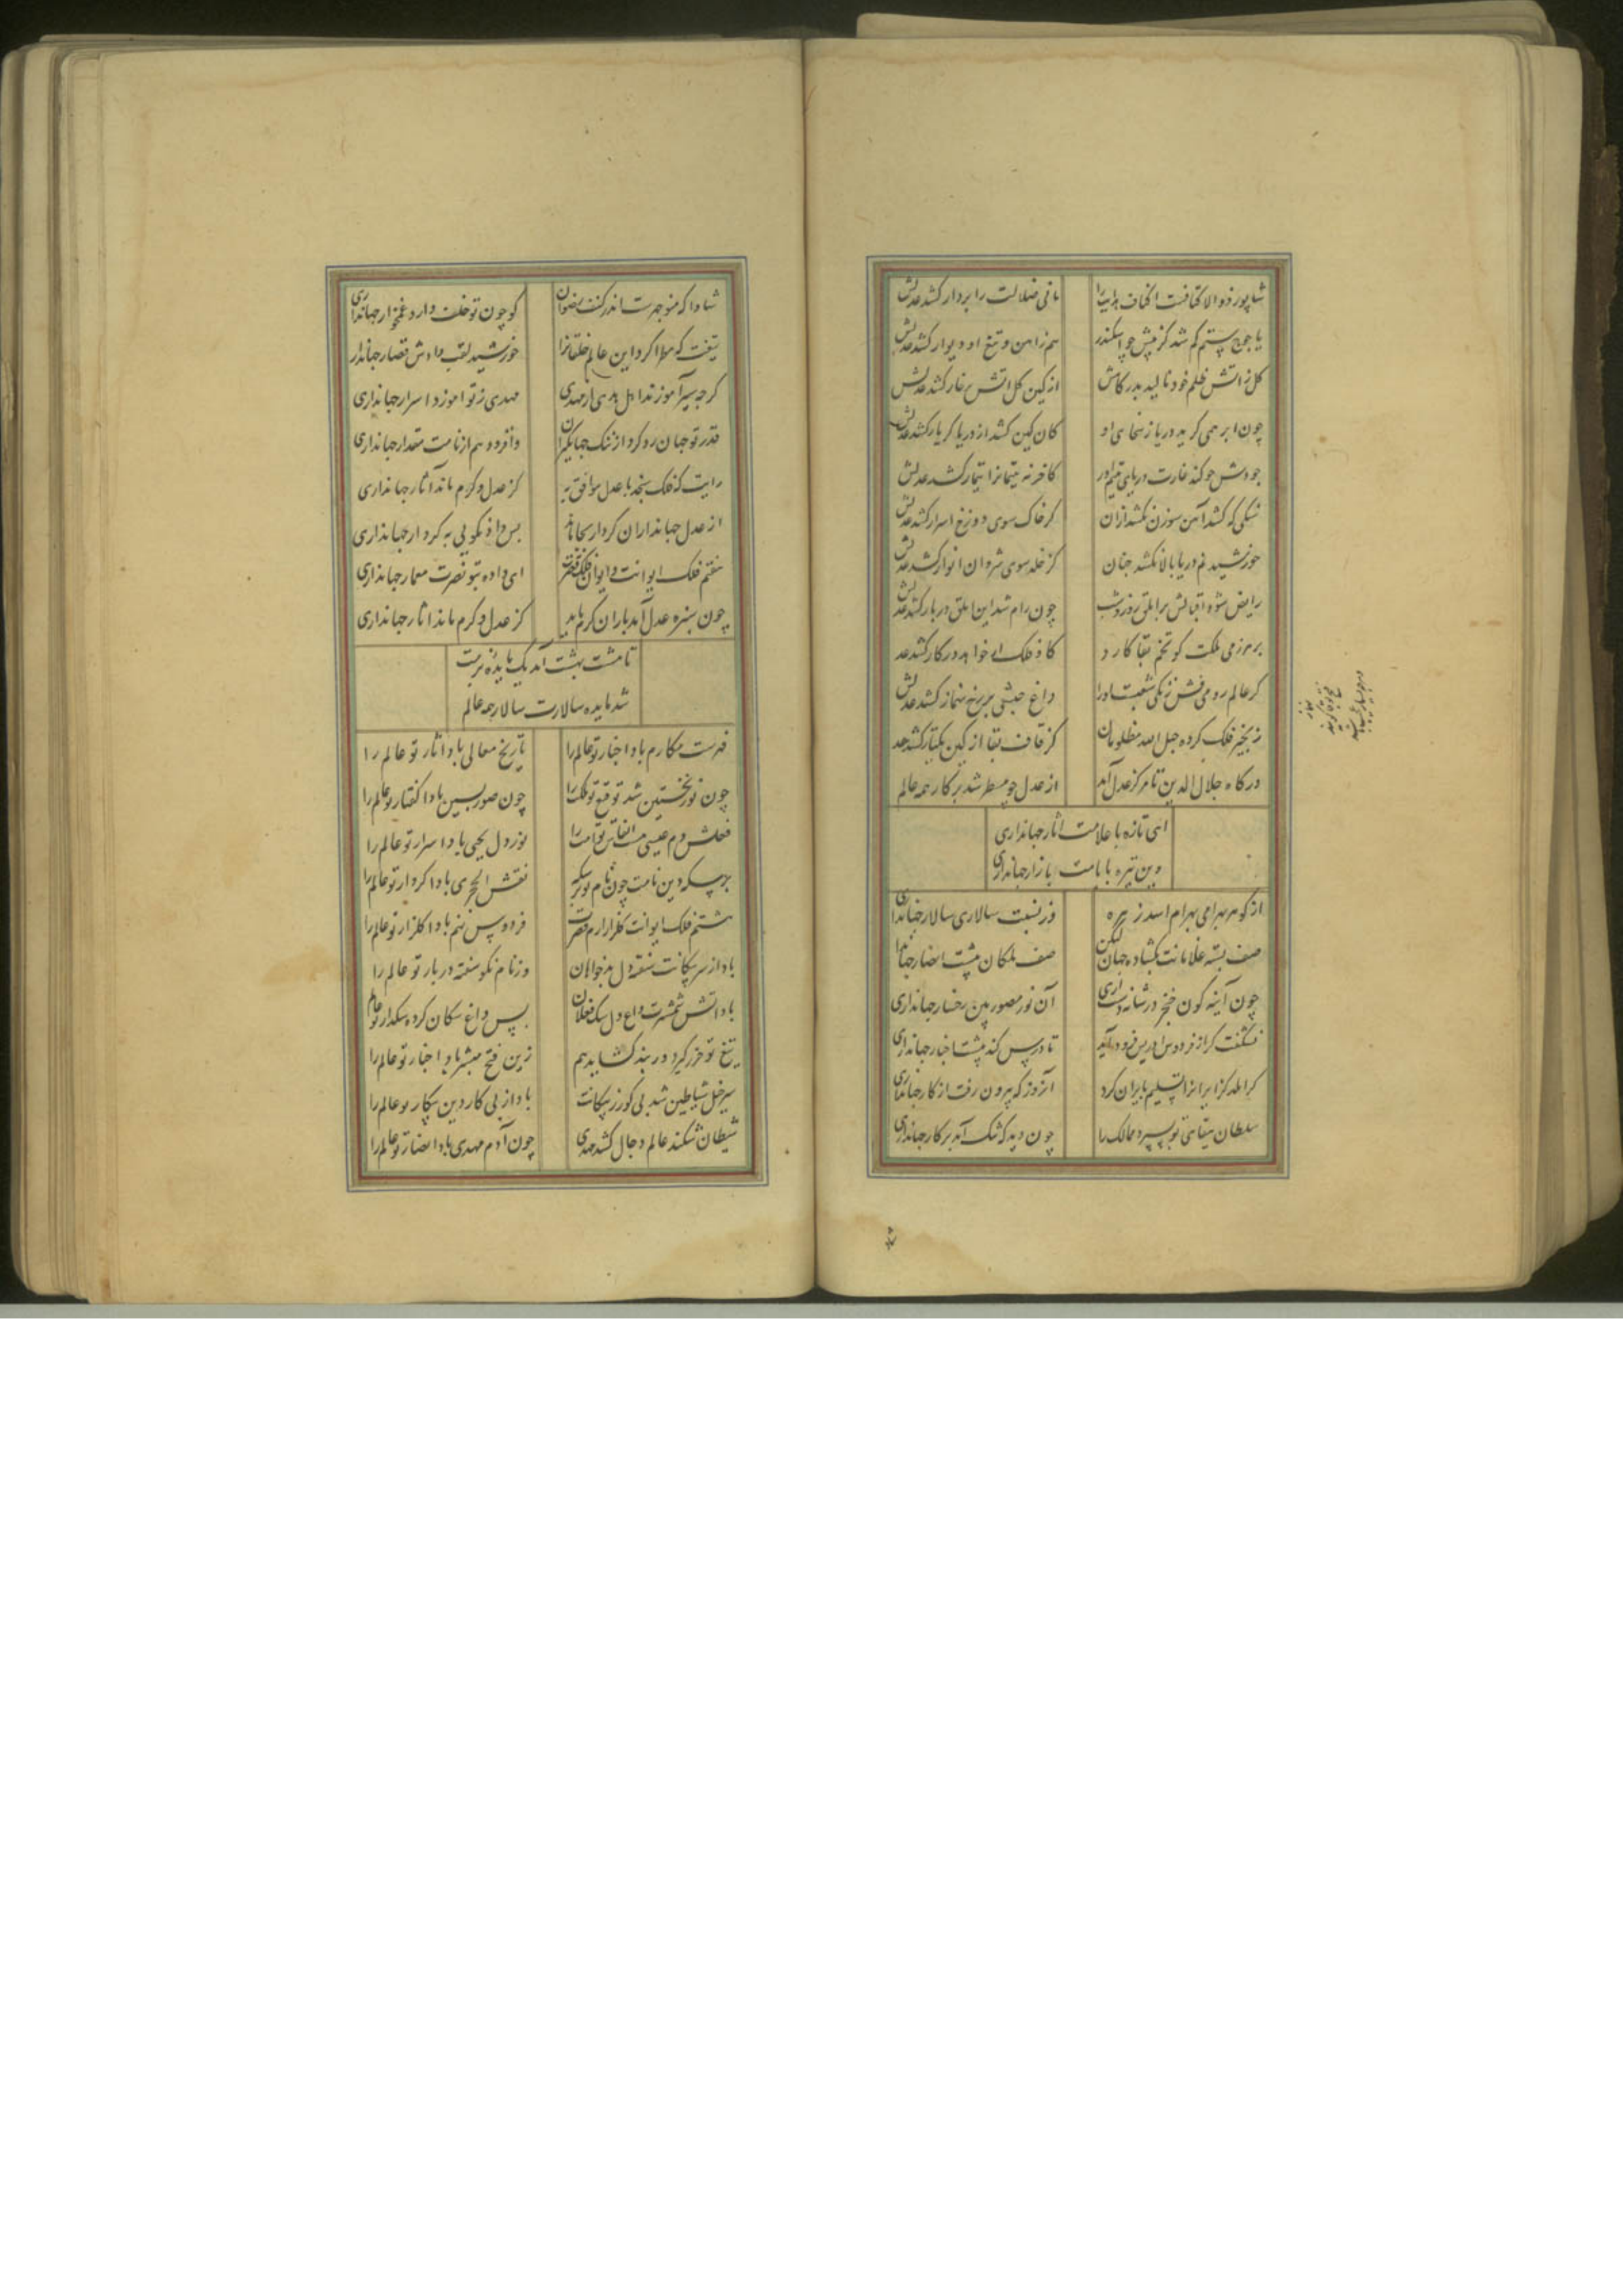 شاپور ذو الاکتافت اکناف هدایت را مانی ضلالت را بردار کشد عدلش
یاجوج ستم گم شد کز پیش چو اسکندر هم زاهن و تیغ او دیوار کشد عدلش
گل زاتش ظلم خود نالید بدرگاهش از کین گل اتش بر خار کشد عدلش
چون ابر همی گرید دریا ز سخای او کان کین کشد از دریا گر یار کشد عدلش
جودش چو کند غارت دریای یتیم آور کاخر نه یتیمانرا تیمار کشد عدلش
سنگی که کشد آهن سوزن نکشد زان کز خاک سوی دوزخ اسرار کشد عدلش
خورشید نم دریا بالا نکشد چنان کز خلد سوی شروان انوار کشد عدلش
رایض شده اقبالش بر ابلق روز و شب چون رام شد این ابلق دربار کشد عدلش
بر هر زمی ملکت کو تخم بقا کارد گاو فلک ار خواهد در کار کشد عد
گر عالم رومی فش زنگی شغبست او را داغ حبشی بر رخ کشد عدلش
زنجیر فلک کرده حبل الله مظلومان کز قاف بقا از کین کشد عد
درگاه جلال الدین تا مرکز عدل آمد از عدل چو مسطر شد پرگار همه عالم
ای تازه با علامت آثار جهانداری
وین تیره بایامت بازار جهانداری
از گوهر بهرامی بهرام اسد زهره وز نسبت سالاری سالار جهانداری
صف بسته غلامانت بگشاده جهان لیکن صف ملکان پیشت احضار جهاندا
چون آینه گون خنجر در شانه دست اری آن نور مصور بین رخسار جهانداری
نشگفت کر از فردوس ادریس فرود آید تا درس کند پیشت اخبار جهانداری
کر ایران را تسلیم بایران کرد آنروز که بیرون رفت از کار جهانداری
سلطان بیتاقی تو بسپرد ممالک را چون دید که تنگ آمد برکار جهانداری
شادا که منوچهرست اندر کنف رضوان کو چون تو خلف دارد غمخوار جهانداری
تیغت که مطرا کرد این عالم خلقانرا خورشید لقب دادش قصار جهاندار
گرچه سیر آموزند اهل هدی از مهدی مهدی ز تو آموزد اسرار جهانداری
قدر تو جهان رد کرد از ننگ جهانگیران وافزود هم از نامت مقدار جهانداری
رایت که فلک سنجد با عدل موافق به کز عدل و کرم ماند آثار جهانداری
از عدل جهانداران کردار بجا ماند بس داد نکویی به کردار جهانداری
هفتم فلک ایوانت و ایوان فلک قصرت ای داده بتو نصرت معمار جهانداری
چون سبزه عدل آمد باران کرم باید کز عدل و کرم ماند آثار جهانداری
تا هشت بهشت آمد یک مایده بزمت
شد مایده سالارت سالار همه عالم
فهرست مکارم باد اخبار تو عالم را تاریخ معالی باد آثار تو عالم را
چون نور نخستین شد توقیع تو ملکت را چون صور پسین بادا گفتار تو عالم را
فعلش دم عیسی است انفاس تو امت را نور دل یحیی باد اسرار تو عالم را
بر سکه دین نامت چون نام تو بر سکه نقش الحجری بادا کردار تو عالم را
هشتم فلک ایوانت گلزار ارم قصرت فردوس نهم بادا گلزار تو عالم را
باد از سر پیکانت سفته دل بدخواهان وز نام نکو سفته دربار تو عالم را
باد آتش شمشیرت داغ دل سگ فعلان پس داغ سگان کرده سگدار تو عالم
تیغ تو خزر گیرد دربند گشاید هم زین فتح مبشر باد اخبار تو عالم را
سرخیل شیاطین شد بی کور ز پیکانت باد از پی کار دین پیکار تو عالم را
شیطان شکند عالم دجال کشد مهدی چون آدم مهدی باد انصار تو عالم را